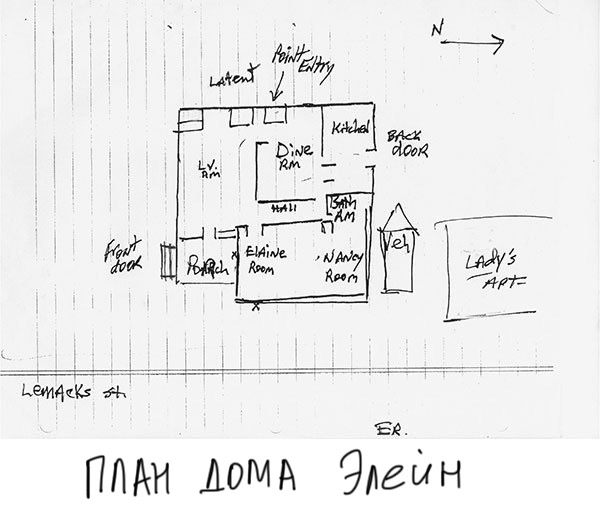 N
POINT
ENTRY
LATENT
Kitchen
BACK
DOOR
DINE
RM
LV.
RM
HALL
BATH
RM
Front
door
PORCH
ELAINE
ROOM
NANCY
ROOM
Veh
LADY'S
APT
LEMACKS St.
ER.
ПЛАН ДОМА Элейн